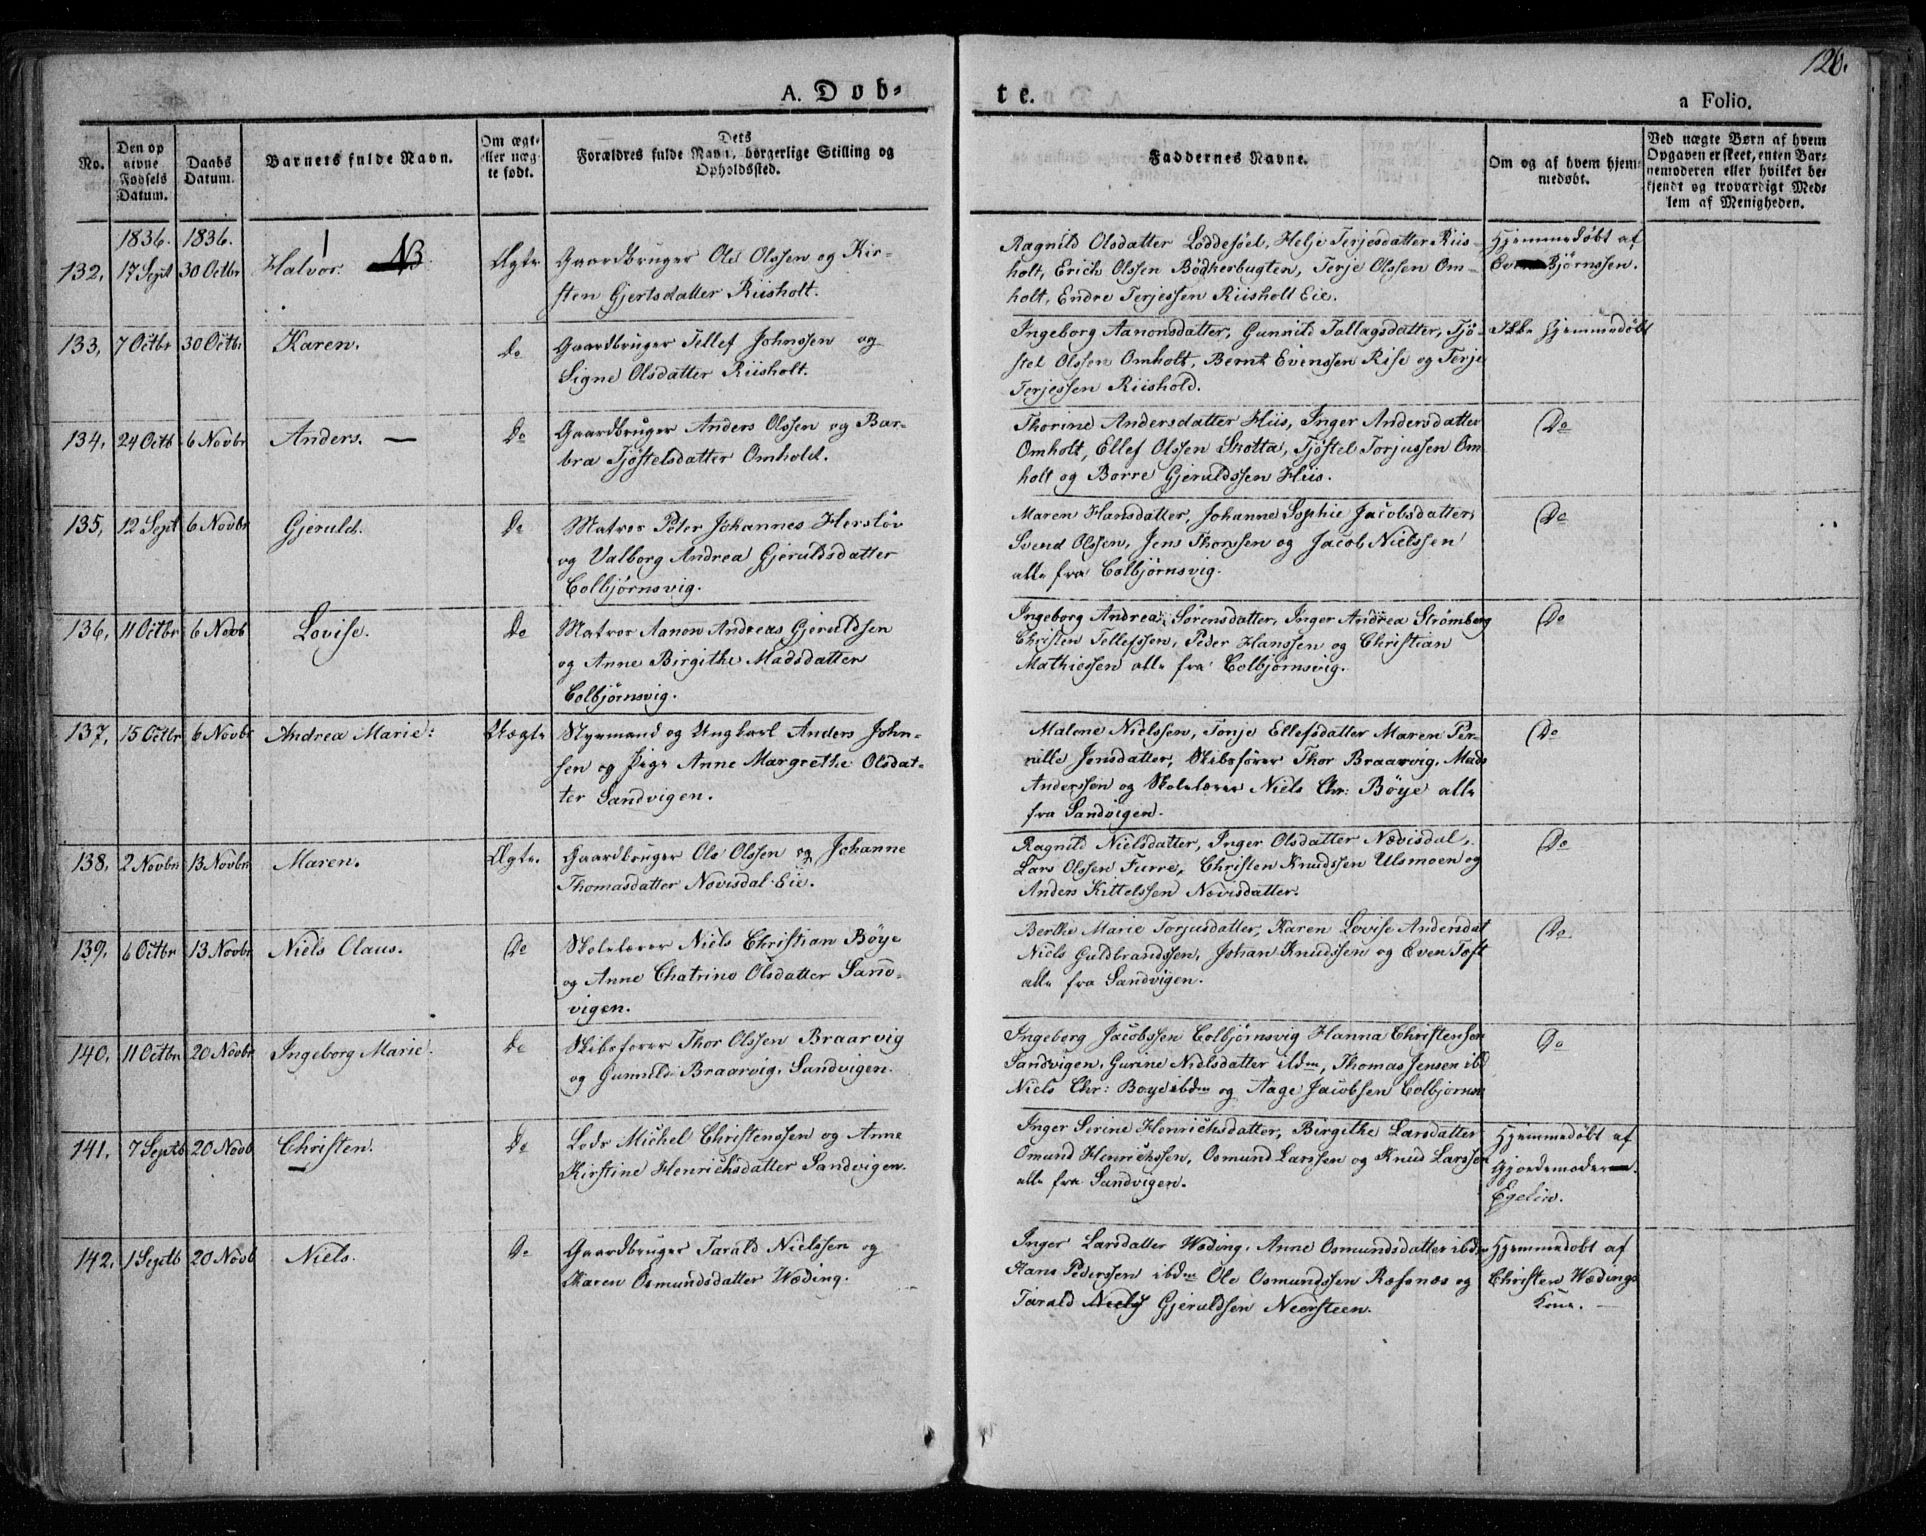 126.
A. Dob-
te.
a Folio.
No.
Den op
givne
Fødsels
Datum.
Daabs
Datum.
Barnets fulde Navn.
Om ægte
eller uæg-
te født.
Dets
Forældres fulde Navn, borgerlige Stilling og
Opholdssted.
Faddernes Navne.
Om og af hvem hjem-
medøbt.
Ved uægte Børn af hvem
Opgaven er skeet, enten Bar-
nemoderen eller hvilket be-
kjendt og troværdigt Med-
lem af Menigheden.
1836. 1836.
132, 17 Sept 30 Octbr Halvor. NB. Ægte Gaardbruger Ole Olssen og Kir-
sten Gjertsdatter Riisholt.
Ragnild Olsdatter Löddesöel, Helje Terjesdatter Riis-
holt, Erich Olssen Bödkerbugten, Terje Olssen Om-
holt, Endre Terjessen Riisholt Eie.
Hjemmedøbt af
Bjørnssen.
133, 7 Octbr 30 Octbr Karen. Do Gaardbruger Tellef Johnssen og
Signe Olsdatter Riisholt.
Ingeborg Aanonsdatter, Gunnild Tallagsdatter, Tjö-
stel Olssen Omholt, Bernt Evenssen Rise og Terje
Terjessen Riishold.
Ikke Hjemmedøbt
134, 24 Octb 6 Novbr Anders. — Do Gaardbruger Anders Olssen og Bar-
bra Tjöstelsdatter Omholdt.
Thorine Andersdatter Hiis, Inger Andersdatter
Omholt, Ellef Olssen Skotta, Tjöstel Torjussen Om
holt og Borre Gjeruldssen Hiis.
Do
135, 12 Sept 6 Novbr Gjeruld. Do Matros Peter Johannes Herslöv
og Valborg Andrea Gjeruldsdatter
Colbjørnsvig.
Maren Hansdatter, Johanne Sophie Jacobsdatter,
Svend Olssen, Jens Thorssen og Jacob Nielssen
alle fra Colbjørnsvig.
Do
136, 11 Octbr 6 Novb Lovise. Do Matros Aanon Andreas Gjeruldsen
og Anne Birgithe Madsdatter
Colbjørnsvig.
Ingeborg Andrea Sørensdatter, Inger Andrea Strömberg
Christen Tellefssen, Peder Hanssen og Christian
Mathiessen alle fra Colbjørnsvig.
Do
137, 15 Octbr 6 Novbr Andrea Marie: Uægte Styrmand og Ungkarl Anders John-
sen og Pige Anne Margrethe Olsdat-
ter Sandvigen.
Malene Nielssen, Tonje Ellefsdatter Maren Per-
nille Jensdatter, Skibsfører Thor Braarvig, Mads
Anderssen og Skolelærer Niels Chr: Böye alle
fra Sandvigen.
Do
138, 2 Novbr 13 Novbr Maren. Ægte. Gaardbruger Ole Olssen og Johanne
Thomasdatter Novisdal-Eie.
Ragnild Nielsdatter, Inger Olsdatter Nævisdal,
Lars Olssen Furre, Christen Knudssen Ulsmoen og
Anders Kittelssen Novisdatter.
Do
139, 6 Octbr 13 Novbr Niels Claus. Do Skolelærer Niels Christian Böye
og Anne Chatrine Olsdatter Sand-
vigen.
Berthe Marie Torjusdatter, Karen Lovise Andersdat
Niels Guldbrandssen, Johan Knudssen og Even Toft
alle fra Sandvigen.
Do
140, 11 Octbr 20 Novbr Ingeborg Marie. Do Skibsfører Thor Olssen Braarvig
og Gunnild Braarvig, Sandvigen.
Ingeborg Jacobssen Colbjörnsvig Hanna Christensen
Sandvigen, Gurine Nielsdatter ibdm, Thomas Jensen ibd
Niels Chr: Boye ibdm og Aage Jacobsen Colbjörnsv
Do
141, 7 Septb 20 Novb Christen. Do Lods Michel Christenssen og Anne
Kirstine Henrichsdatter Sandvigen.
Inger Serine Henrichsdatter, Birgithe Larsdatter
Omund Henrichssen, Osmund Larssen og Knud Larssen
alle fra Sandvigen.
Hjemmedøbt af
Gjordemoder
Egelin.
142, 1 Septb 20 Novb Niels. Do Gaardbruger Tarald Nielssen og
Karen Osmundsdatter Wæding.
Inger Larsdatter Wæding, Anne Osmundsdatter ibdm
Hans Pederssen ibdm Ole Osmundssen Ræfsnæs og
Tarald Niels Gjeruldsen Neersteen.
Hjemmedøbt af
Christen Wædings
Kone. —